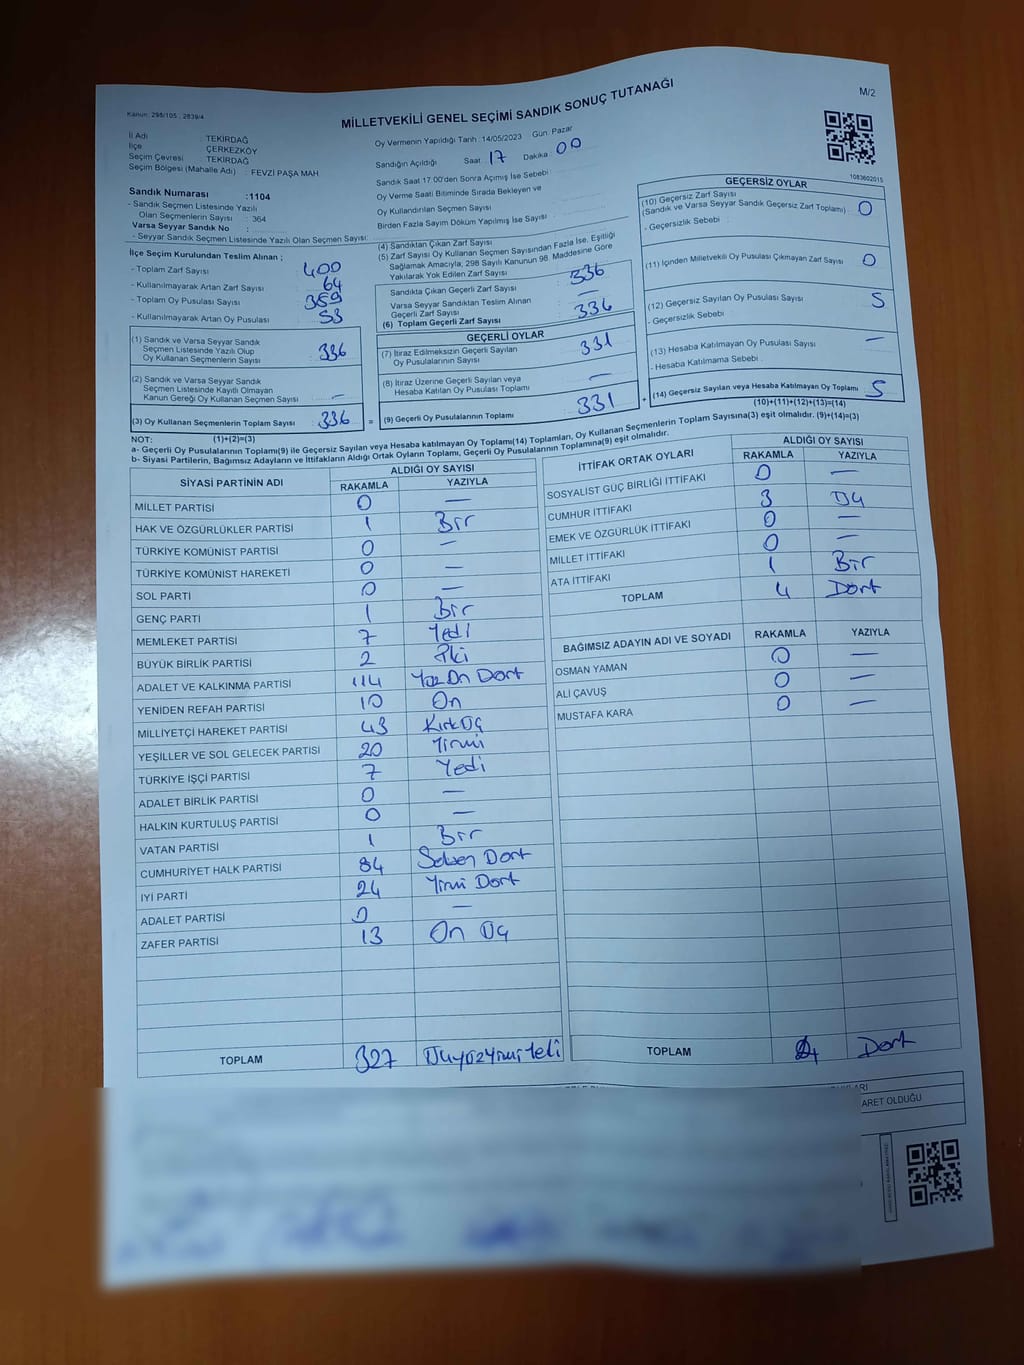 Kanun: 298/105 ; 2839/4
MİLLETVEKİLİ GENEL SEÇİMİ SANDIK SONUÇ TUTANAĞI
M/2
İl Adı : TEKİRDAĞ
İlçe : ÇERKEZKÖY
Seçim Çevresi : TEKİRDAĞ
Seçim Bölgesi (Mahalle Adı) : FEVZİ PAŞA MAH
Sandık Numarası : 1104
- Sandık Seçmen Listesinde Yazılı
Olan Seçmenlerin Sayısı : 364
Varsa Seyyar Sandık No :
- Seyyar Sandık Seçmen Listesinde Yazılı Olan Seçmen Sayısı:
Oy Vermenin Yapıldığı Tarih : 14/05/2023 Gün: Pazar
Sandığın Açıldığı Saat 17 Dakika : 00
Sandık Saat 17:00'den Sonra Açımış İse Sebebi :
Oy Verme Saati Bitiminde Sırada Bekleyen ve
Oy Kullandırılan Seçmen Sayısı :
Birden Fazla Sayım Döküm Yapılmış İse Sayısı :
1083602015
İlçe Seçim Kurulundan Teslim Alınan ;
- Toplam Zarf Sayısı : 400
- Kullanılmayarak Artan Zarf Sayısı : 64
- Toplam Oy Pusulası Sayısı : 389
- Kullanılmayarak Artan Oy Pusulası : 53
(1) Sandık ve Varsa Seyyar Sandık
Seçmen Listesinde Yazılı Olup
Oy Kullanan Seçmenlerin Sayısı : 336
(2) Sandık ve Varsa Seyyar Sandık
Seçmen Listesinde Kayıtlı Olmayan
Kanun Gereği Oy Kullanan Seçmen Sayısı : —
(3) Oy Kullanan Seçmenlerin Toplam Sayısı : 336
(1)+(2)=(3)
(4) Sandıktan Çıkan Zarf Sayısı
(5) Zarf Sayısı Oy Kullanan Seçmen Sayısından Fazla İse, Eşitliği
Sağlamak Amacıyla, 298 Sayılı Kanunun 98. Maddesine Göre
Yakılarak Yok Edilen Zarf Sayısı :
Sandıkta Çıkan Geçerli Zarf Sayısı : 336
Varsa Seyyar Sandıktan Teslim Alınan
Geçerli Zarf Sayısı : —
(6) Toplam Geçerli Zarf Sayısı : 336
GEÇERLİ OYLAR
(7) İtiraz Edilmeksizin Geçerli Sayılan
Oy Pusulalarının Sayısı : 331
(8) İtiraz Üzerine Geçerli Sayılan veya
Hesaba Katılan Oy Pusulası Toplamı : —
= (9) Geçerli Oy Pusulalarının Toplamı : 331 +
GEÇERSİZ OYLAR
(10) Geçersiz Zarf Sayısı
(Sandık ve Varsa Seyyar Sandık Geçersiz Zarf Toplamı) : 0
- Geçersizlik Sebebi :
(11) İçinden Milletvekili Oy Pusulası Çıkmayan Zarf Sayısı : 0
(12) Geçersiz Sayılan Oy Pusulası Sayısı : 5
- Geçersizlik Sebebi :
(13) Hesaba Katılmayan Oy Pusulası Sayısı : —
- Hesaba Katılmama Sebebi :
(14) Geçersiz Sayılan veya Hesaba Katılmayan Oy Toplamı : 5
(10)+(11)+(12)+(13)=(14)
NOT:
a- Geçerli Oy Pusulalarının Toplamı(9) ile Geçersiz Sayılan veya Hesaba katılmayan Oy Toplamı(14) Toplamları, Oy Kullanan Seçmenlerin Toplam Sayısına(3) eşit olmalıdır. (9)+(14)=(3)
b- Siyasi Partilerin, Bağımsız Adayların ve İttifakların Aldığı Ortak Oyların Toplamı, Geçerli Oy Pusulalarının Toplamına(9) eşit olmalıdır.
SİYASİ PARTİNİN ADI ALDIĞI OY SAYISI
RAKAMLA YAZIYLA
MİLLET PARTİSİ 0 —
HAK VE ÖZGÜRLÜKLER PARTİSİ 1 Bir
TÜRKİYE KOMÜNİST PARTİSİ 0 —
TÜRKİYE KOMÜNİST HAREKETİ 0 —
SOL PARTİ 0 —
GENÇ PARTİ 1 Bir
MEMLEKET PARTİSİ 7 Yedi
BÜYÜK BİRLİK PARTİSİ 2 İki
ADALET VE KALKINMA PARTİSİ 114 Yüz On Dört
YENİDEN REFAH PARTİSİ 10 On
MİLLİYETÇİ HAREKET PARTİSİ 43 Kırk Üç
YEŞİLLER VE SOL GELECEK PARTİSİ 20 Yirmi
TÜRKİYE İŞÇİ PARTİSİ 7 Yedi
ADALET BİRLİK PARTİSİ 0 —
HALKIN KURTULUŞ PARTİSİ 0 —
VATAN PARTİSİ 1 Bir
CUMHURİYET HALK PARTİSİ 84 Seksen Dört
İYİ PARTİ 24 Yirmi Dört
ADALET PARTİSİ 0 —
ZAFER PARTİSİ 13 On Üç
TOPLAM 327
İTTİFAK ORTAK OYLARI ALDIĞI OY SAYISI
RAKAMLA YAZIYLA
SOSYALİST GÜÇ BİRLİĞİ İTTİFAKI 0 —
CUMHUR İTTİFAKI 3 Üç
EMEK VE ÖZGÜRLÜK İTTİFAKI 0 —
MİLLET İTTİFAKI 0 —
ATA İTTİFAKI 1 Bir
TOPLAM 4 Dört
BAĞIMSIZ ADAYIN ADI VE SOYADI RAKAMLA YAZIYLA
OSMAN YAMAN 0 —
ALİ ÇAVUŞ 0 —
MUSTAFA KARA 0 —
TOPLAM 4 Dört
ARET OLDUĞU